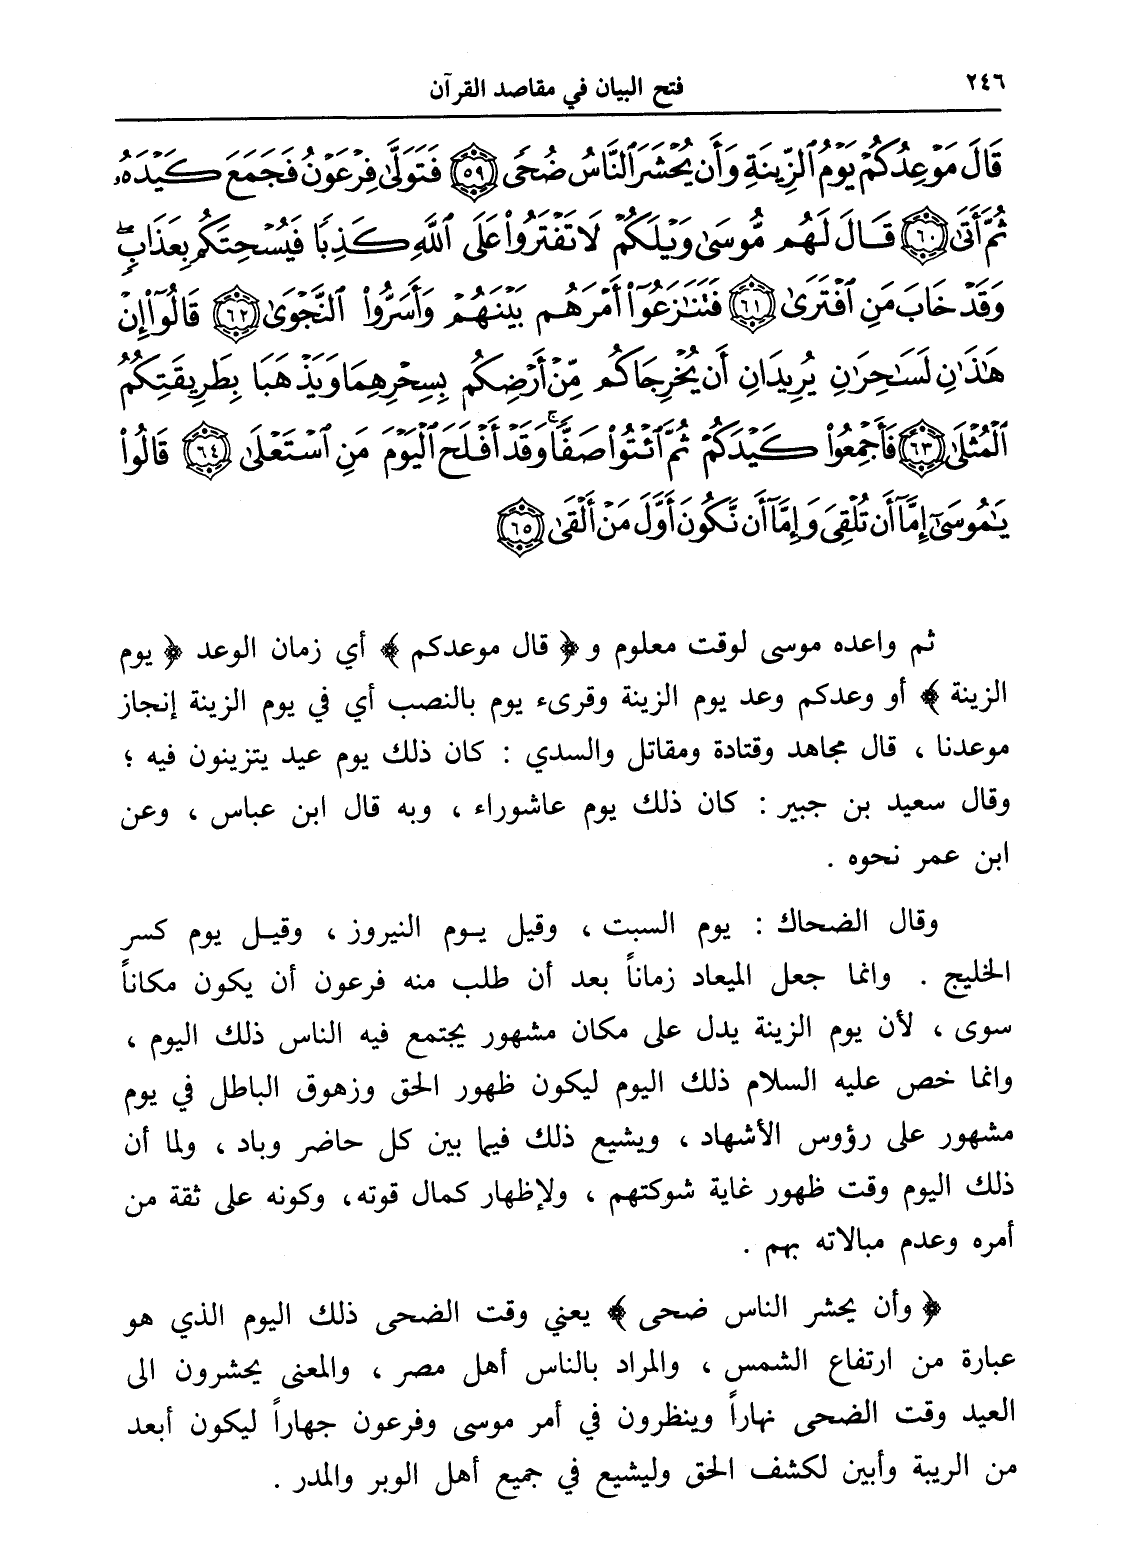 ٢٤٦
فتح البيان في مقاصد القرآن
قَالَ مَوْعِدُكُمْ يَوْمُ ٱلزِّينَةِ وَأَن يُحْشَرَ ٱلنَّاسُ ضُحًى ٥٩ فَتَوَلَّىٰ فِرْعَوْنُ فَجَمَعَ كَيْدَهُۥ
ثُمَّ أَتَىٰ ٦٠ قَالَ لَهُم مُّوسَىٰ وَيْلَكُمْ لَا تَفْتَرُوا۟ عَلَى ٱللَّهِ كَذِبًا فَيُسْحِتَكُم بِعَذَابٍ ۖ
وَقَدْ خَابَ مَنِ ٱفْتَرَىٰ ٦١ فَتَنَـٰزَعُوٓا۟ أَمْرَهُم بَيْنَهُمْ وَأَسَرُّوا۟ ٱلنَّجْوَىٰ ٦٢ قَالُوٓا۟ إِنْ
هَـٰذَٰنِ لَسَـٰحِرَٰنِ يُرِيدَانِ أَن يُخْرِجَاكُم مِّنْ أَرْضِكُم بِسِحْرِهِمَا وَيَذْهَبَا بِطَرِيقَتِكُمُ
ٱلْمُثْلَىٰ ٦٣ فَأَجْمِعُوا۟ كَيْدَكُمْ ثُمَّ ٱئْتُوا۟ صَفًّا ۚ وَقَدْ أَفْلَحَ ٱلْيَوْمَ مَنِ ٱسْتَعْلَىٰ ٦٤ قَالُوا۟
يَـٰمُوسَىٰٓ إِمَّآ أَن تُلْقِىَ وَإِمَّآ أَن نَّكُونَ أَوَّلَ مَنْ أَلْقَىٰ ٦٥
ثم واعده موسى لوقت معلوم و ﴿ قال موعدكم ﴾ أي زمان الوعد ﴿ يوم
الزينة ﴾ أو وعدكم وعد يوم الزينة وقرىء يوم بالنصب أي في يوم الزينة إنجاز
موعدنا ، قال مجاهد وقتادة ومقاتل والسدي : كان ذلك يوم عيد يتزينون فيه ؛
وقال سعيد بن جبير : كان ذلك يوم عاشوراء ، وبه قال ابن عباس ، وعن
ابن عمر نحوه .
وقال الضحاك : يوم السبت ، وقيل يوم النيروز ، وقيل يوم كسر
الخليج . وانما جعل الميعاد زماناً بعد أن طلب منه فرعون أن يكون مكاناً
سوى ، لأن يوم الزينة يدل على مكان مشهور يجتمع فيه الناس ذلك اليوم ،
وانما خص عليه السلام ذلك اليوم ليكون ظهور الحق وزهوق الباطل في يوم
مشهور على رؤوس الأشهاد ، ويشيع ذلك فيما بين كل حاضر وباد ، ولما أن
ذلك اليوم وقت ظهور غاية شوكتهم ، ولإظهار كمال قوته، وكونه على ثقة من
أمره وعدم مبالاته بهم .
﴿ وأن يحشر الناس ضحى ﴾ يعني وقت الضحى ذلك اليوم الذي هو
عبارة من ارتفاع الشمس ، والمراد بالناس أهل مصر ، والمعنى يحشرون الى
العيد وقت الضحى نهاراً وينظرون في أمر موسى وفرعون جهاراً ليكون أبعد
من الريبة وأبين لكشف الحق وليشيع في جميع أهل الوبر والمدر .